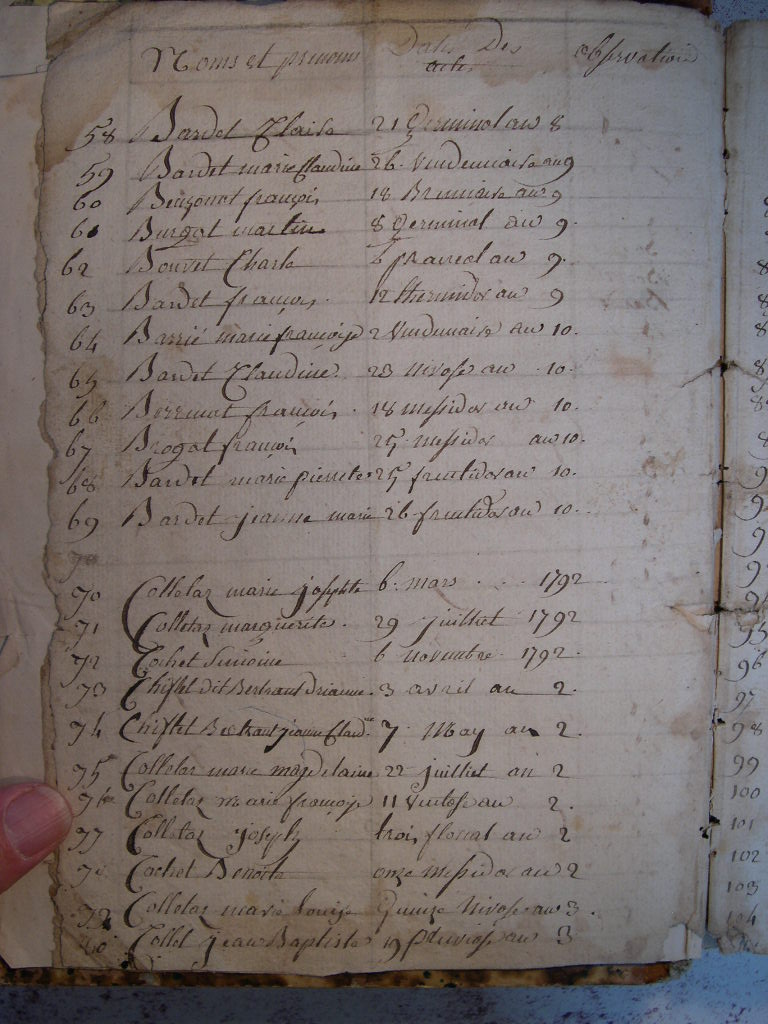 Noms et prenoms Dates Des actes observations
58 Bardet Claire 21 Germinal an 8
59 Bardet marie Claudine 26 Vendemiaire an 9
60 françois 18 Brumaire an 9
61 Burgat martin 8 Germinal an 9.
62 Bouvet Charle 6 prairial an 9.
63 Bardet françois. 12 thermidor an 9
64 Barrié marie françoise 2 Vendemiaire an 10.
65 Bardet Claudine 23 Nivose an 10.
66 françois. 18 Messidor an 10.
67 Brogat françois 25 messidor an 10.
68 Bardet marie pierrete 25 fructidor an 10.
69 Bardet jeanne marie 26 fructidor an 10.
70
70 Colletaz marie josephte 6. mars 1792
71 Colletaz marguerite. 29 juilliet 1792
72 Cachet Simoine 6 novembre 1792.
73 Chiflet dit Bertrand 3 avril an 2.
74 Chiflet Bertrand jeanne Claudne 7 May an 2.
75 Colletaz marie magdelaine 22 juilliet an 2
76 Colletaz marie françoise 11 Ventose an 2.
77 Colletaz joseph trois floreal an 2
78 Cachet Benoite onze Messidor an 2
79 Colletaz marie louise Quinze Nivose an 3.
80 Collet jean Baptiste 19 pluviose an 3
96
97
98
99
100
101
102
103
104